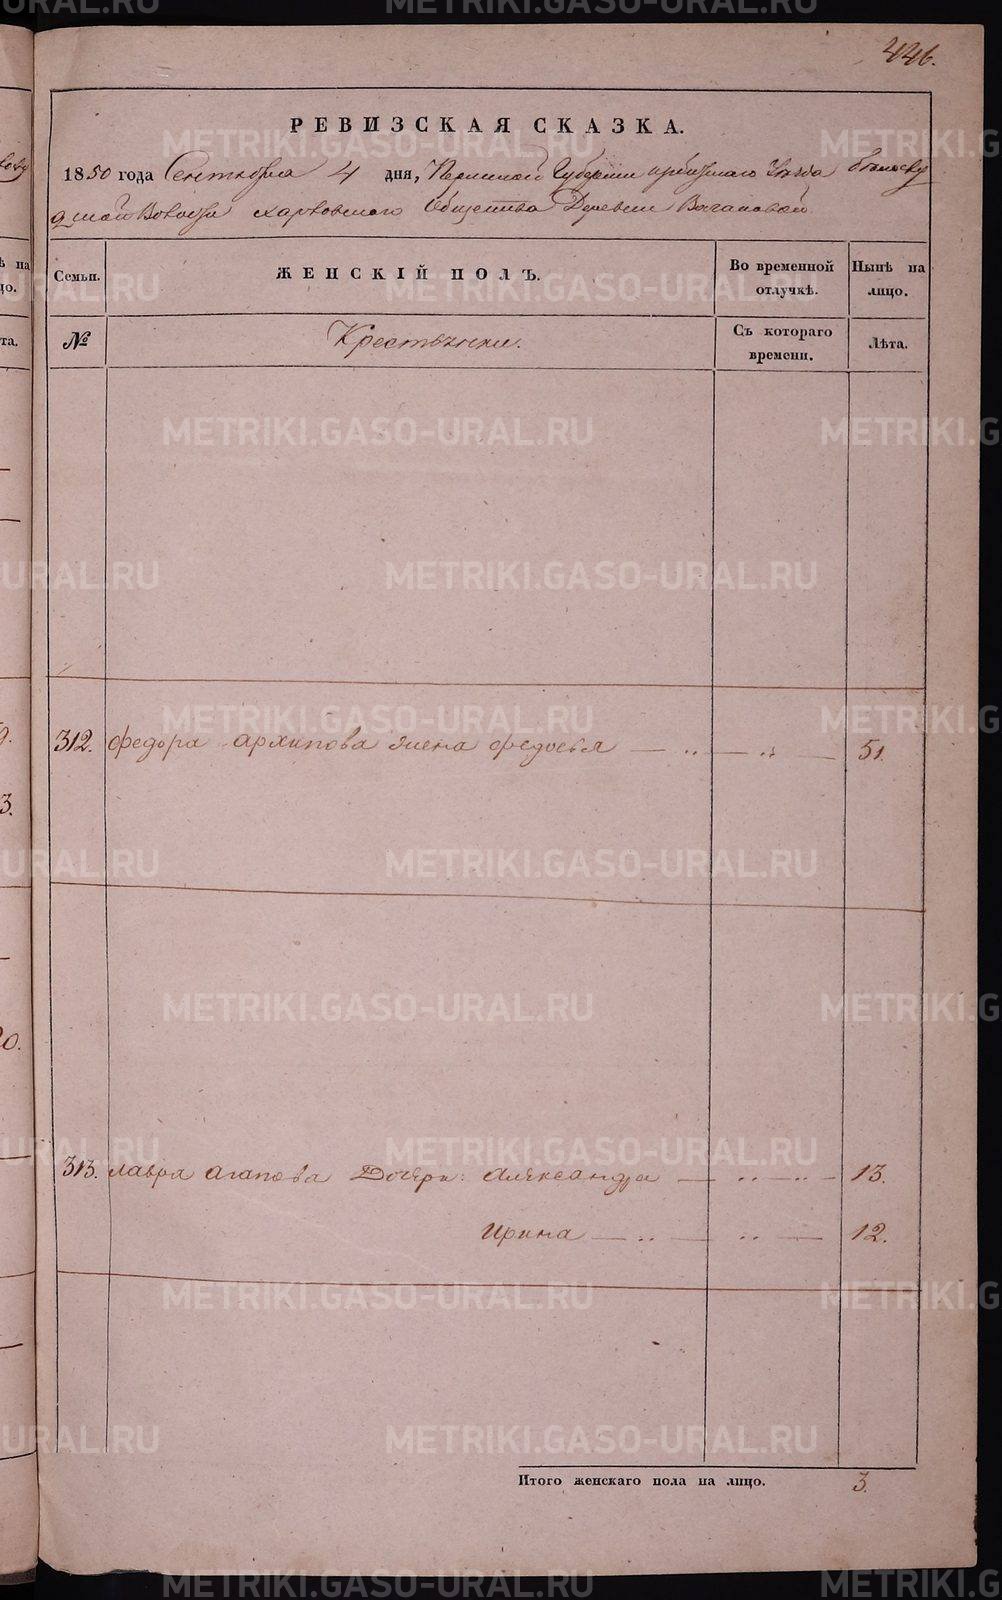 446.
РЕВИЗСКАЯ СКАЗКА.
1850 года Сентября 4 дня, Пермской Губернии Ирбитскаго Уѣзда
Волости Харловскаго Общества Деревни Вагановой
Семьи. ЖЕНСКІЙ ПОЛЪ. Во временной отлучкѣ. Нынѣ на лицо.
№ Крестьянки. Съ котораго времени. Лѣта.
312. Федора Архипова жена Федосья 51.
313. Лавра Агапова Дочери: Александра 13.
Ирина 12.
Итого женскаго пола на лицо. 3.
METRIKI.GASO-URAL.RU